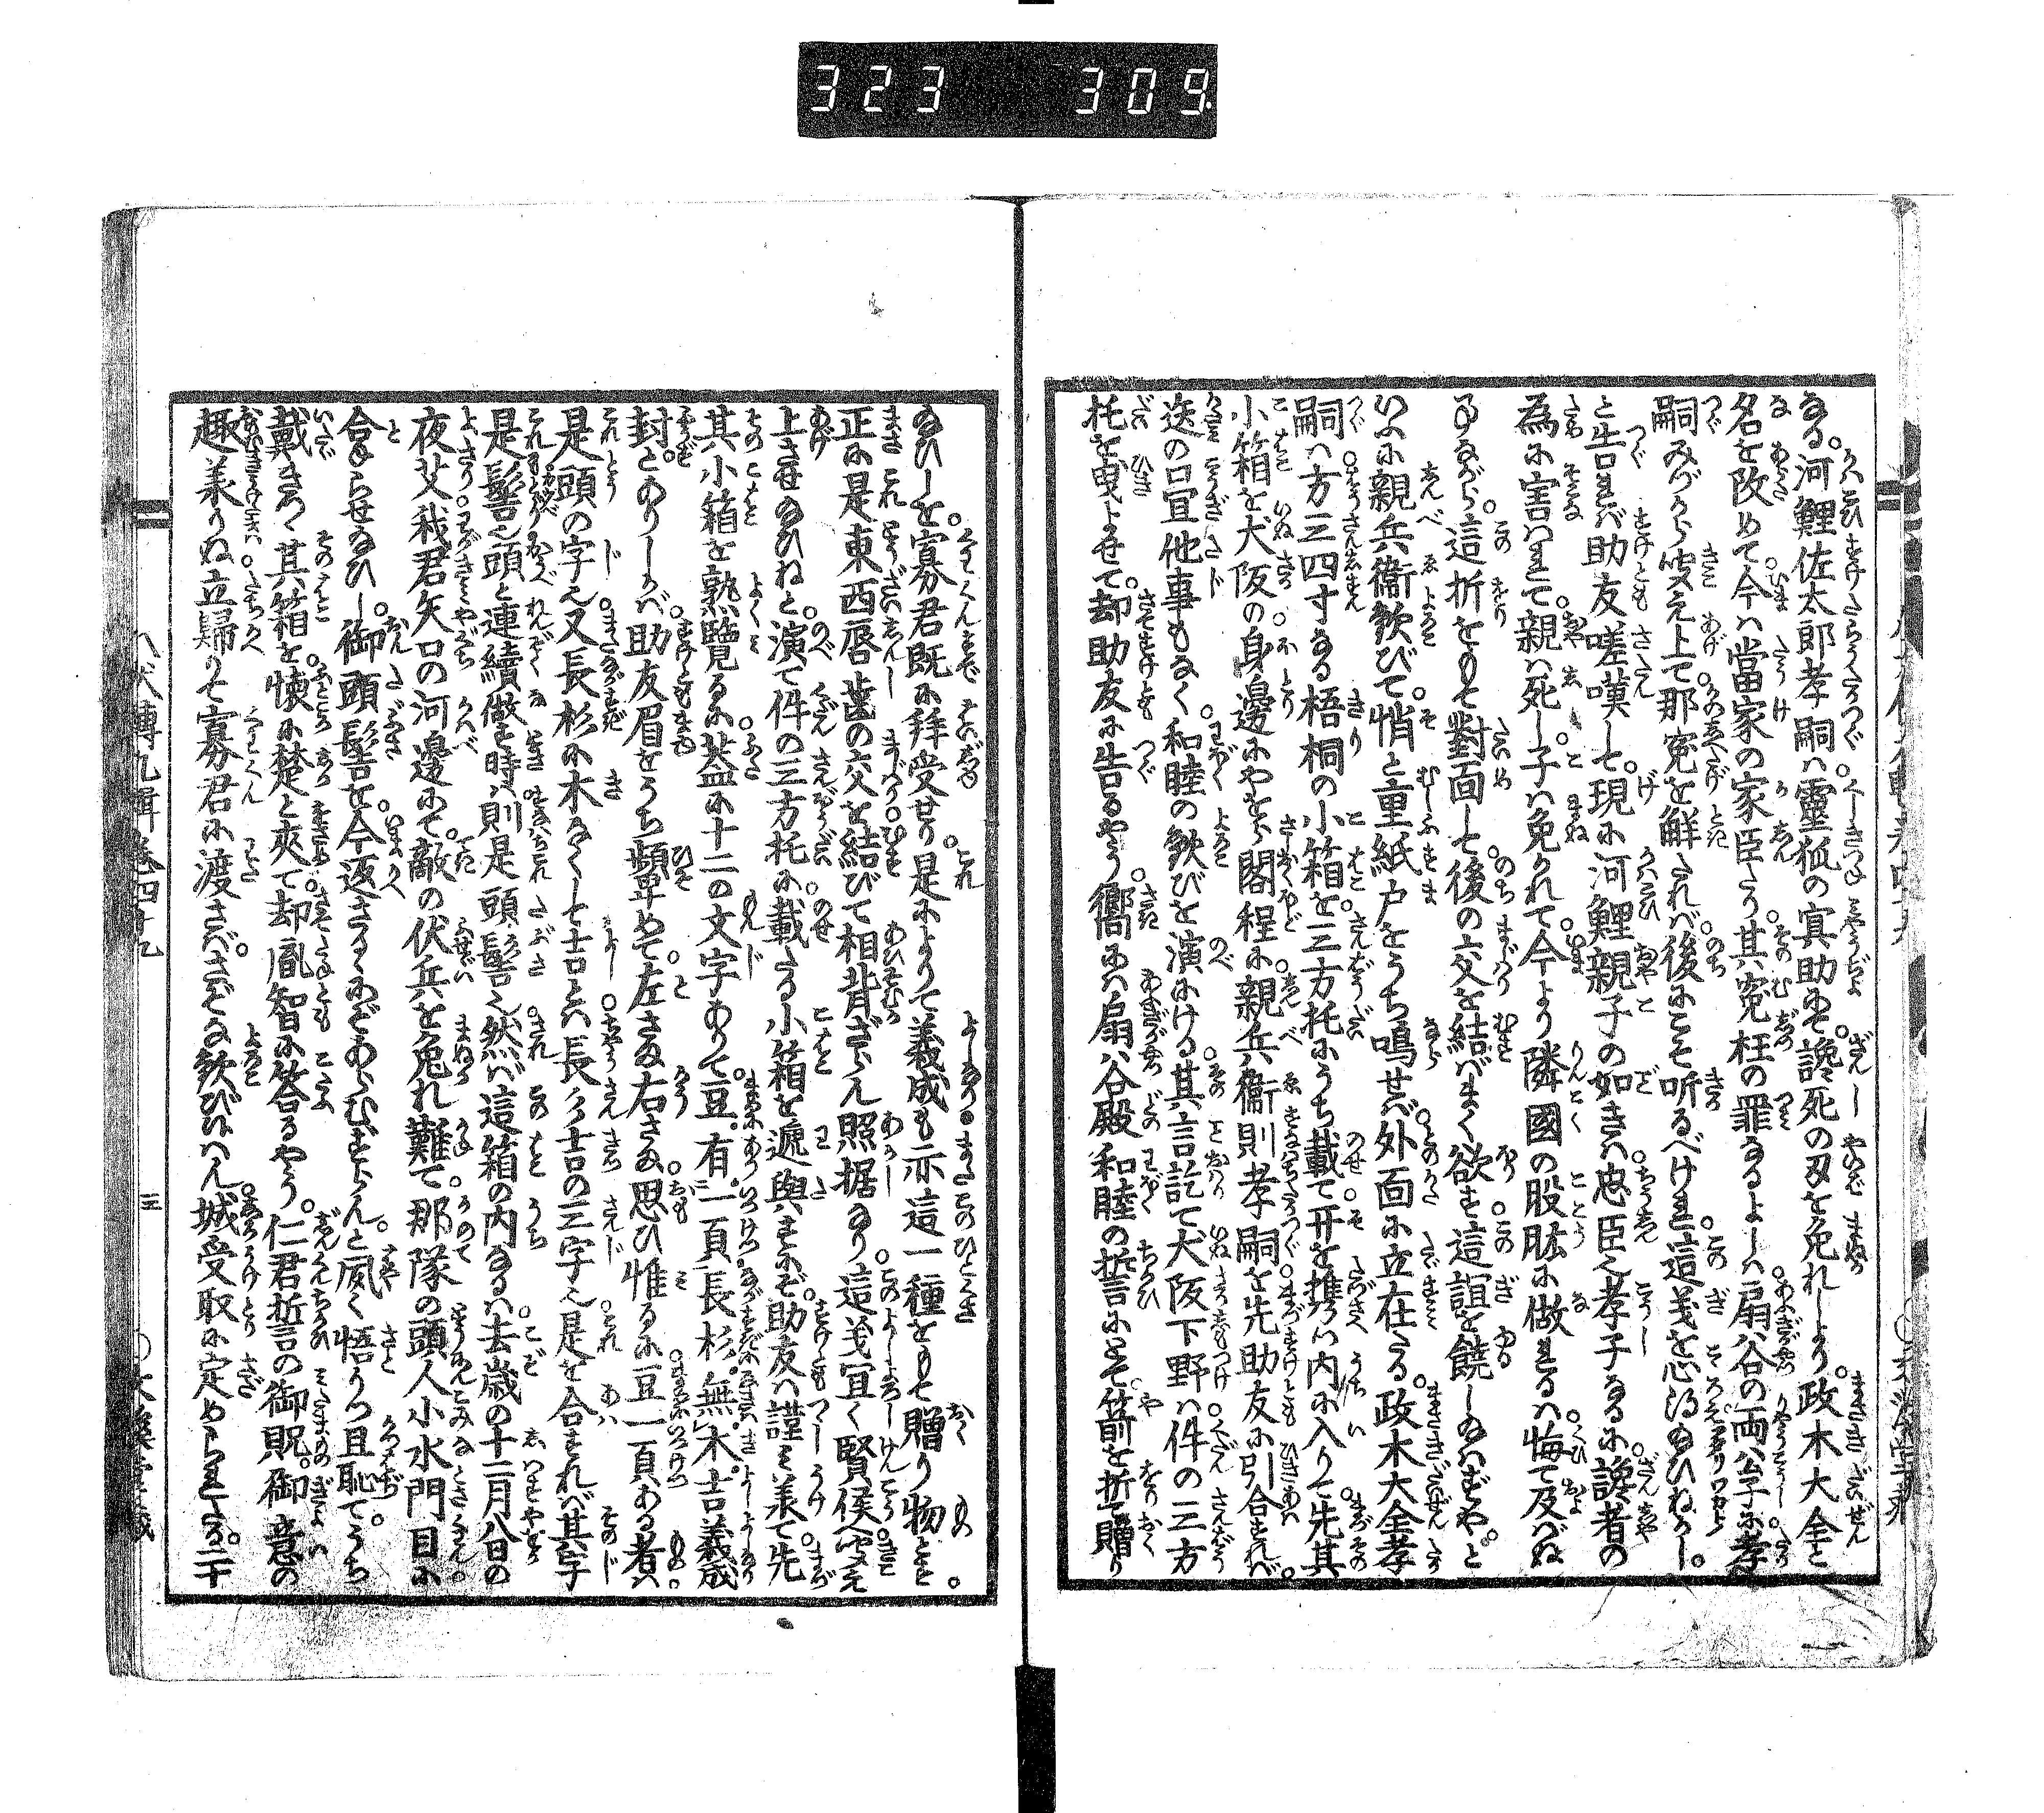 323 309
なる。河鯉佐太郎孝嗣ハ靈狐の冥助にて。讒死の刃を免れしより。政木大全と
名を改めて。今ハ當家の家臣たり。其寃枉の罪なるよしハ。扇谷の両公子に。孝
嗣みづから聞え上て。那寃を鮮されバ。後にこそ听るべけれ。這義を心得のひねかし。
と告れバ助友嗟嘆して。現に河鯉親子の如きハ。忠臣也孝子なるに。讒者の
為に害ハれて。親ハ死し子ハ免かれて。今より隣國の股肱に做れるハ。悔て及バぬ
事ながら。這折をもて對面して。後の交を結バまく欲す。這誼を饒しのハずや。と
いふに親兵衞歓びて。悄と重紙戸をうち鳴せバ。外面に立在たる。政木大全孝
嗣ハ。方三四寸なる梧桐の小箱を。三方托にうち載て。开を携つゝ内に入りて。先其
小箱を犬阪の。身邊にやをら閣程に。親兵衞則孝嗣を。先助友に引合すれバ。
迭の口宜他事もなく。和睦の歓びを演にける。其言訖て犬阪下野ハ。件の三方
托を曳よせて。却助友に告るやう。嚮にハ扇谷殿。和睦の誓言にとて。箭を折て贈り
なひしを。寡君既に拜受せり。是によりて義成も亦。這一種をもて贈り物とす。
正に是東西唇齒の交を結びて。相背ざらん照据なり。這義宜く賢侯へ。聞え
上させのひねと。演て件の三方托に。載たる小箱を遞與すにぞ。助友ハ謹み義て。先
其小箱を熟覽るに。葢に十二の文字ありて。豆有一頁。長杉無木。吉義成
封。とありしかバ。助友眉をうち顰めて。左さま右さま。思ひ惟るに。豆一頁ある者ハ。
是頭の字也。又長杉に木なくして吉とハ。長彡吉の三字也。是を合すれバ。其字
是髻也。頭と連續做す時ハ。則是頭髻也。然バ這箱の内なるハ。去歳の十二月八日の
夜。艾我君矢口の河邊にて。敵の伏兵を免れ難て。那隊の頭人小水門目に
合とらせなひし。御頭髻を今返さるゝにぞあらむずらん。と夙く悟りつ且恥て。うち
戴きつゝ其箱を。懐に楚と夾て。却胤智に答るやう。仁君誓言の御貺。御意の
趣義りぬ。立歸りて寡君に渡さバ。さぞな歓びひハん。城受取に定められたる。二千
八犬傳九輯卷四十九
三